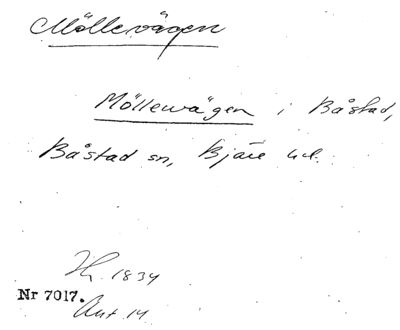 Möllevägen
Möllevägen i Båstad,
Båstad sn, Bjäre hd.
1834
Nr 7017.
Ant 14